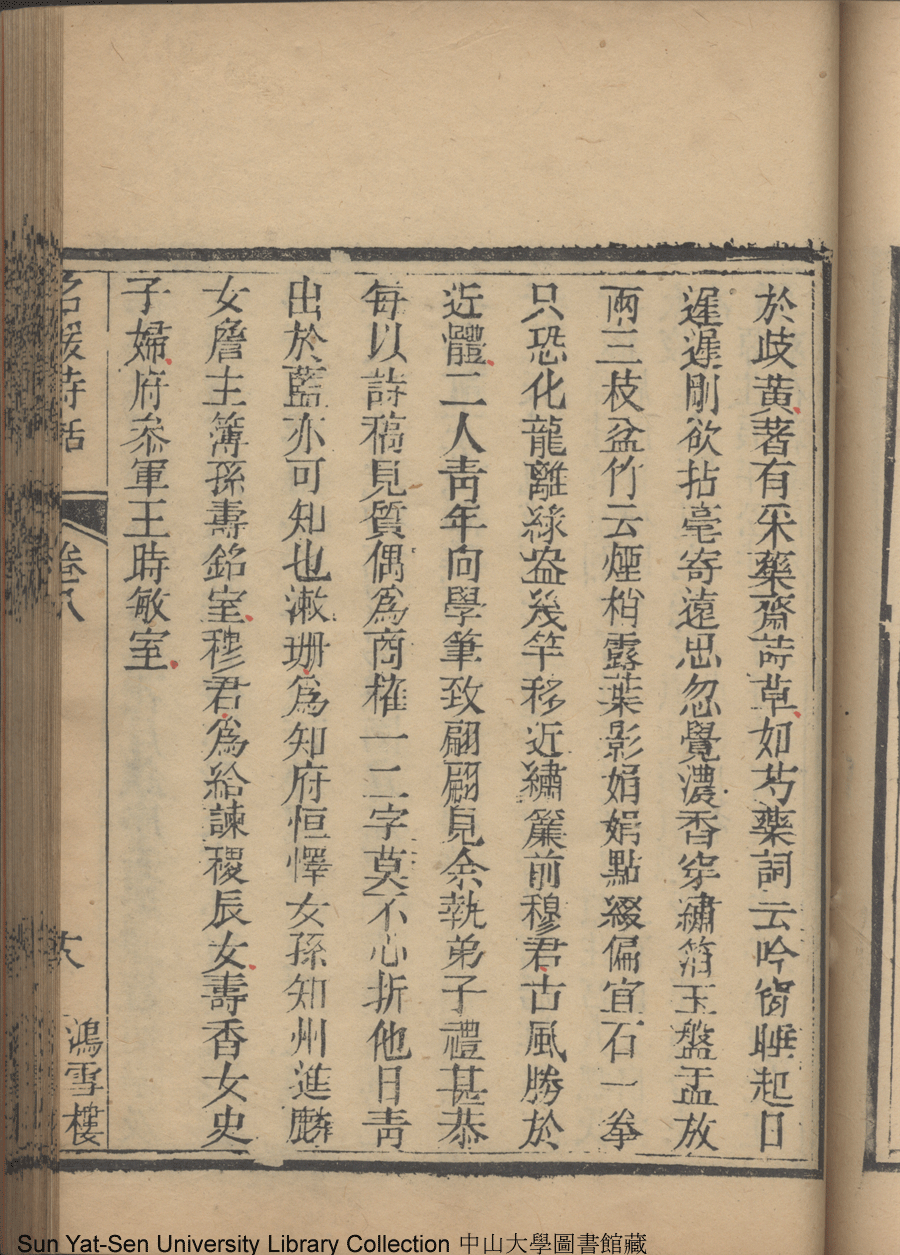 於歧黃著有采藥齋詩草如芍藥詞云吟窗睡起日
遲遲剛欲拈毫寄遠思忽覺濃香穿繡箔玉盤盂放
兩三枝盆竹云煙梢露葉影娟娟點綴偏宜石一拳
只恐化龍離綠盎幾竿移近繡簾前穆君古風勝於
近體二人靑年向學筆致翩翩見余執弟子禮甚恭
每以詩稿見質偶爲商榷一二字莫不心折他日靑
出於藍亦可知也漱珊爲知府恒懌女孫知州進麟
女詹主簿孫壽銘室穆君爲給諫稷辰女壽香女史
子婦府叅軍王時敏室
名媛詩話 卷八 十八 鴻雪樓
Sun Yat-Sen University Library Collection 中山大學圖書館藏